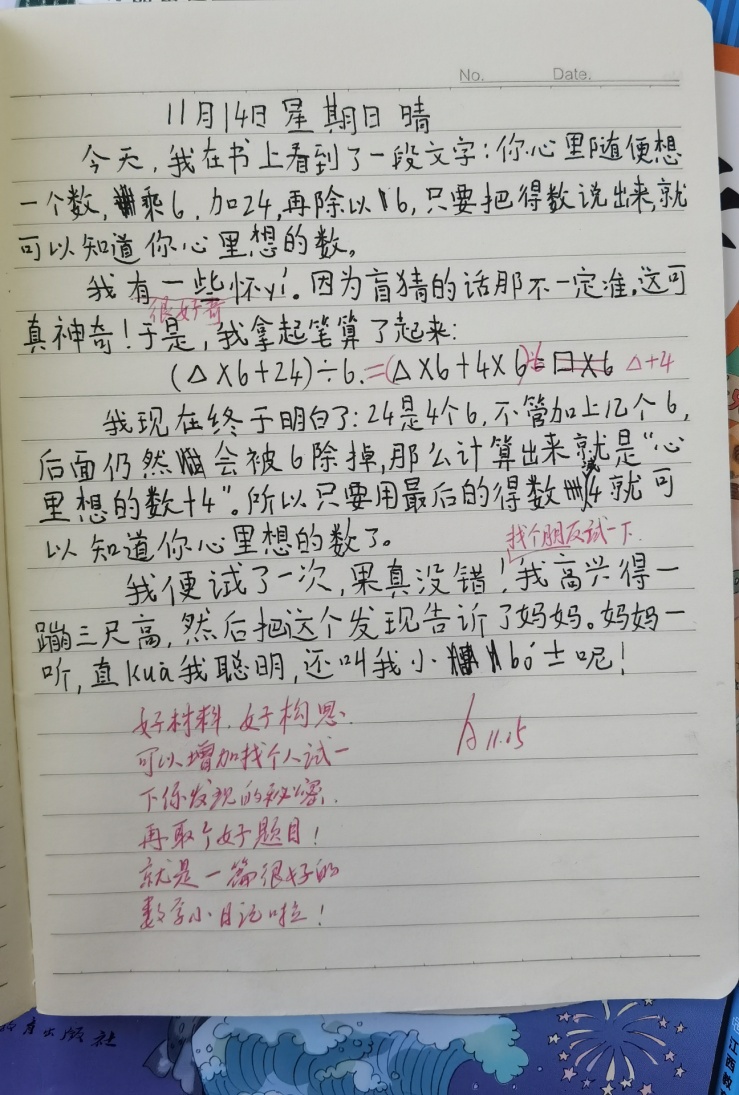 No. Date.
11月14日 星期日 晴
今天,我在书上看到了一段文字:你心里随便想
一个数,乘6,加24,再除以6,只要把得数说出来,就
可以知道你心里想的数。
我有一些怀yí。因为盲猜的话那不一定准,这可
很好奇
真神奇!于是,我拿起笔算了起来:
(△X6+24)÷6.=(△X6+4X6)÷6=口X6 △+4
我现在终于明白了:24是4个6,不管加上几个6,
后面仍然会被6除掉,那么计算出来就是“心
里想的数+4”。所以只要用最后的得数减4就可
以知道你心里想的数了。
找个朋友试一下.
我便试了一次,果真没错!我高兴得一
蹦三尺高,然后把这个发现告诉了妈妈。妈妈一
听,直kuā我聪明,还叫我小bó士呢!
好材料.好构思.
可以增加找个人试一
下你发现的秘密.
再取个好题目!
就是一篇很好的
数学小日记啦!
11.15
育出版社